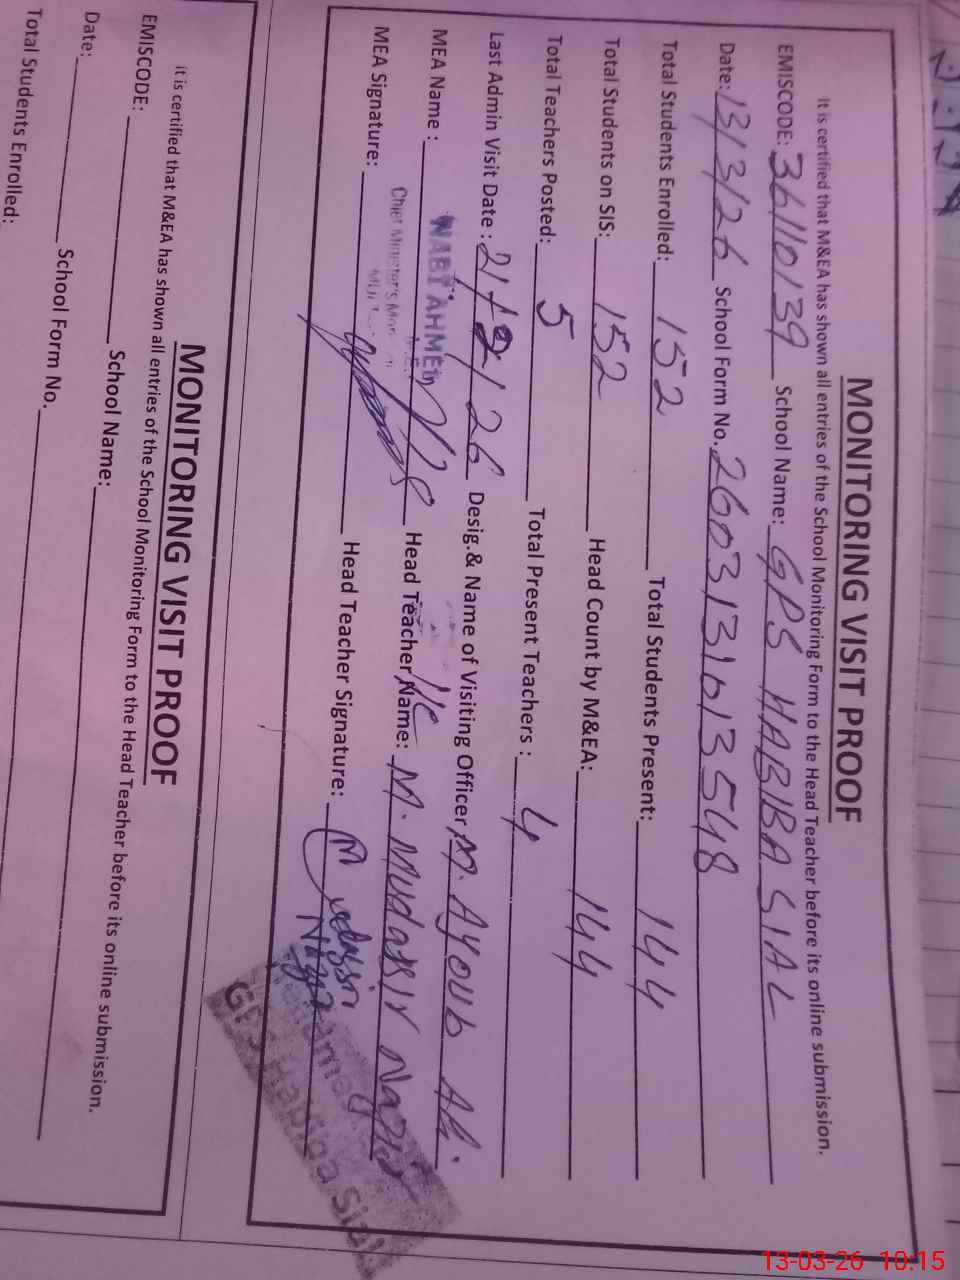 MONITORING VISIT PROOF
It is certified that M&EA has shown all entries of the School Monitoring Form to the Head Teacher before its online submission.
EMISCODE: 36110139 School Name: GPS HABIBA SIAL
Date: 13/3/26 School Form No. 2603131013548
Total Students Enrolled: 152 Total Students Present: 144
Total Students on SIS: 152 Head Count by M&EA: 144
Total Teachers Posted: 5 Total Present Teachers : 4
Last Admin Visit Date : 21/2/26 Desig.& Name of Visiting Officer M. Ayoub Ah.
MEA Name : NABI AHMED Head Teacher Name: M. Mudassir Nazir
Chief Minister's
MEA Signature: Head Teacher Signature:
GPS Habiba Sial
MONITORING VISIT PROOF
It is certified that M&EA has shown all entries of the School Monitoring Form to the Head Teacher before its online submission.
EMISCODE: School Name:
Date: School Form No.
Total Students Enrolled:
13-03-26 10:15